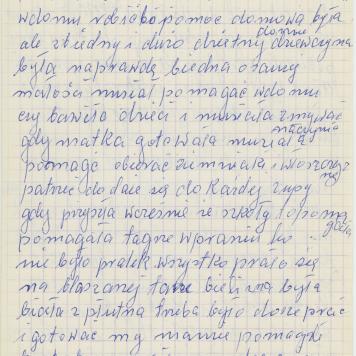 w domu robić bo pomoc domowa była
ale z biednyi dużo dzietny domuw dziewczyna
była naprawdę biedna od samy
małości musiał pomagać w domu
czy bawiła dzieci i musiała zmywać
gdy matka gotowała musiała naczynia
pomagać obierać ziemniaki i włoszczyznę
patrzeć do daje się do każdy zupy
gdy przyszła wcześnie ze szkoły to pomagała
pomagała także w praniu bo
nie było pralek wszystko prało się
na blaszany tarze bielizna była
biała z płutna trzeba było dobrze prać
i gotować my mamie pomagałi